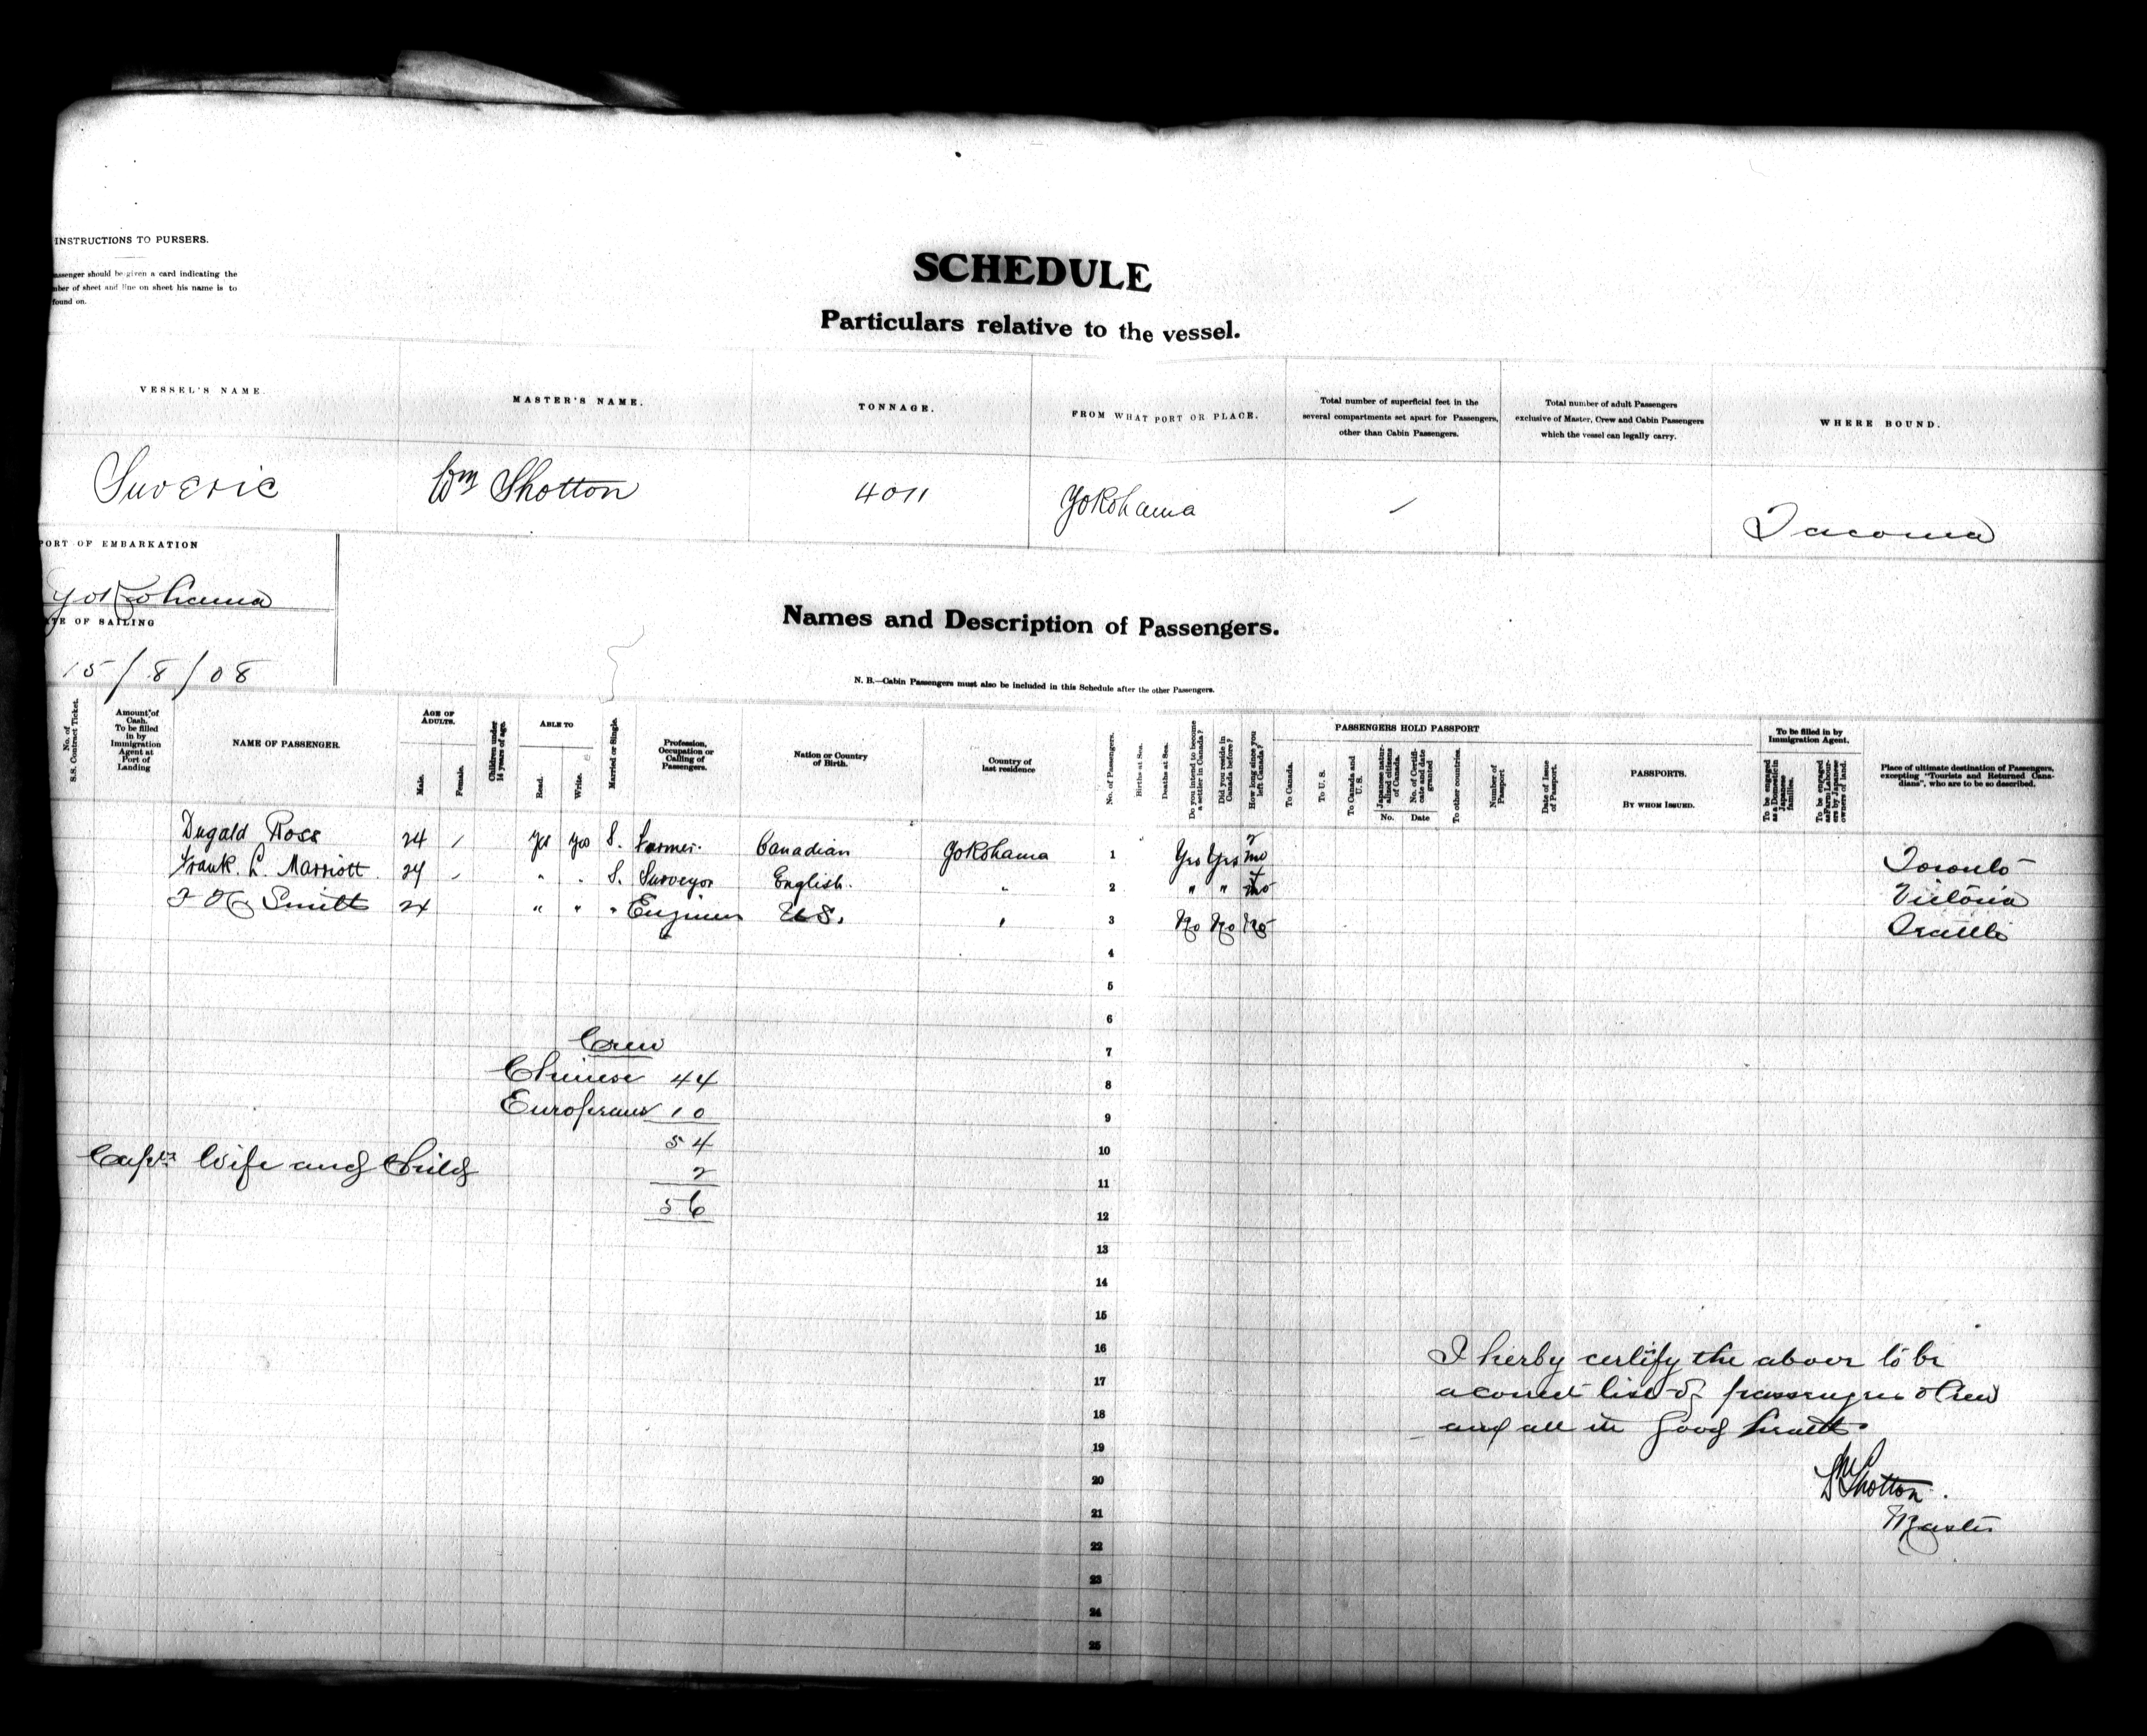 INSTRUCTIONS TO PURSERS.
assenger should be given a card indicating the
nber of sheet and line on sheet his name is to
found on.
SCHEDULE
Particulars relative to the vessel.
VESSEL'S NAME. MASTER'S NAME. TONNAGE. FROM WHAT PORT OR PLACE. Total number of superficial feet in the several compartments set apart for Passengers, other than Cabin Passengers. Total number of adult Passengers exclusive of Master, Crew and Cabin Passengers which the vessel can legally carry. WHERE BOUND.
Suveric Wm Shotton 4011 Yokohama / Tacoma
PORT OF EMBARKATION
Yokohama
ATE OF SAILING
15/8/08
Names and Description of Passengers.
N. B.—Cabin Passengers must also be included in this Schedule after the other Passengers.
No. of S.S. Contract Ticket. Amount of Cash. To be filled in by Immigration Agent at Port of Landing NAME OF PASSENGER. AGE OF ADULTS. Male. Female. Children under 14 years of age. ABLE TO Read. Write. Married or Single. Profession, Occupation or Calling of Passengers. Nation or Country of Birth. Country of last residence No. of Passengers. Births at Sea. Deaths at Sea. Do you intend to become a settler in Canada? Did you reside in Canada before? How long since you left Canada? PASSENGERS HOLD PASSPORT To Canada. To U. S. To Canada and U. S. Japanese naturalized citizens of Canada. No. No. of Certificate and date granted Date To other countries. Number of Passport Date of Issue of Passport. PASSPORTS. BY WHOM ISSUED. To be filled in by Immigration Agent. To be engaged as a Domestic in Japanese families. To be engaged as Farm Labourers by Japanese owners of land. Place of ultimate destination of Passengers, excepting "Tourists and Returned Canadians", who are to be so described.
Dugald Ross 24 / Yes Yes S. Farmer. Canadian Yokohama 1 Yes Yes 2 mo Toronto
Frank. L. Marriott. 24 / " " S. Surveyor English. " 2 " " mo Victoria
Smith 24 " " " Engineer U.S. " 3 No No No Seattle
4
5
6
Crew 7
Chinese 44 8
Europeans 10 9
54 10
Capts Wife and Child 2 11
56 12
13
14
15
16
17
18
19
20
21
22
23
24
25
I herby certify the above to be
a correct list of passengers & Crew
and all in good health.
Wm Shotton.
Master